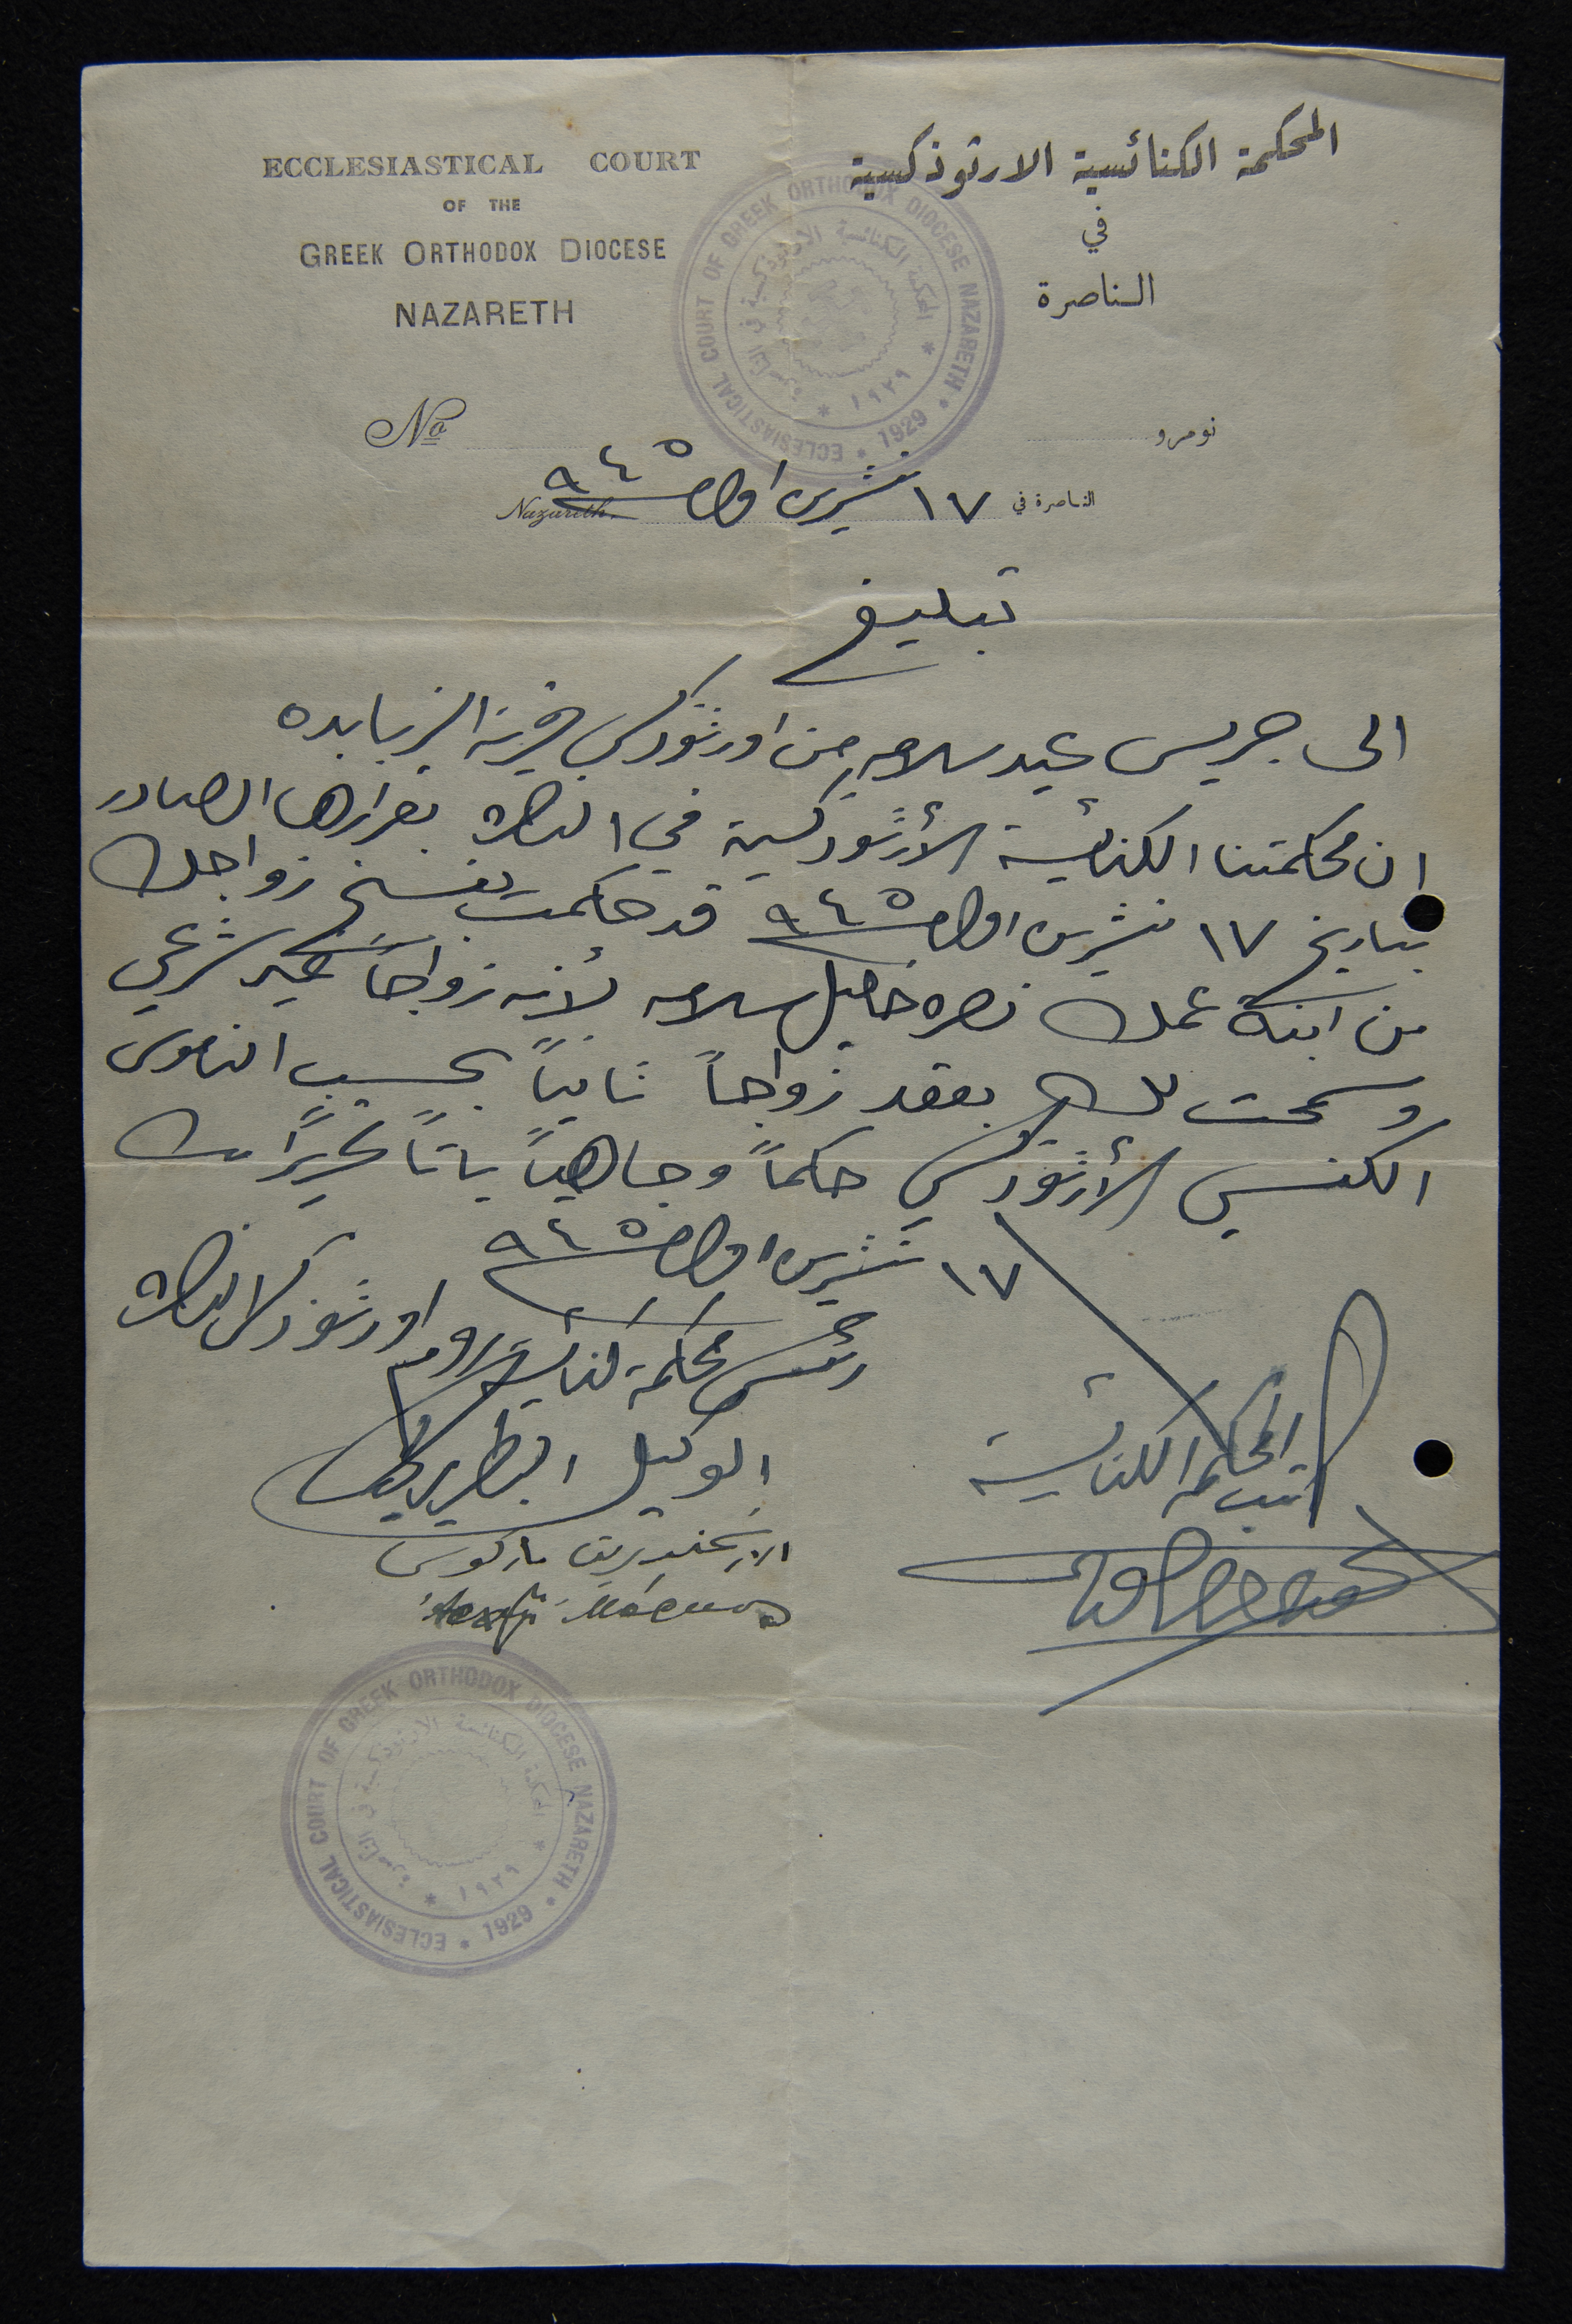 ECCLESIASTICAL COURT
OF THE
GREEK ORTHODOX DIOCESE
NAZARETH
المحكمة الكنائسية الارثوذكسية
في
الناصرة
ECCLESIASTICAL COURT OF GREEK ORTHODOX DIOCESE NAZARETH * 1929 *
المحكمة الكنائسية الارثوذكسية في الناصرة * ١٩٢٩ *
No
نومرو
Nazareth
الناصرة في ١٧ تشرين اول ٩٤٥
تبليغ
الى جريس عيد سلامه من اورثوذكس قرية الزبابده
ان محكمتنا الكنائسية الأرثوذكسية في الناصرة بقرارها الصادر
بتاريخ ١٧ تشرين اول ٩٤٥ قد حكمت بفسخ زواجك
من ابنة عمك نصره خليل سلامه لأنه زواجاً غير شرعي
وسمحت لك بعقد زواجاً ثانياً بحسب الناموس
الكنسي الأرثوذكسي حكماً وجاهياً باتاً تحريراً
١٧ تشرين اول ٩٤٥
رئيس محكمة كنائس روم اورثوذكس الناصرة
الوكيل البطريركي
الارشمندريت ماركوس
كاتب المحكمة الكنائسية
ECCLESIASTICAL COURT OF GREEK ORTHODOX DIOCESE NAZARETH * 1929 *
المحكمة الكنائسية الارثوذكسية في الناصرة * ١٩٢٩ *